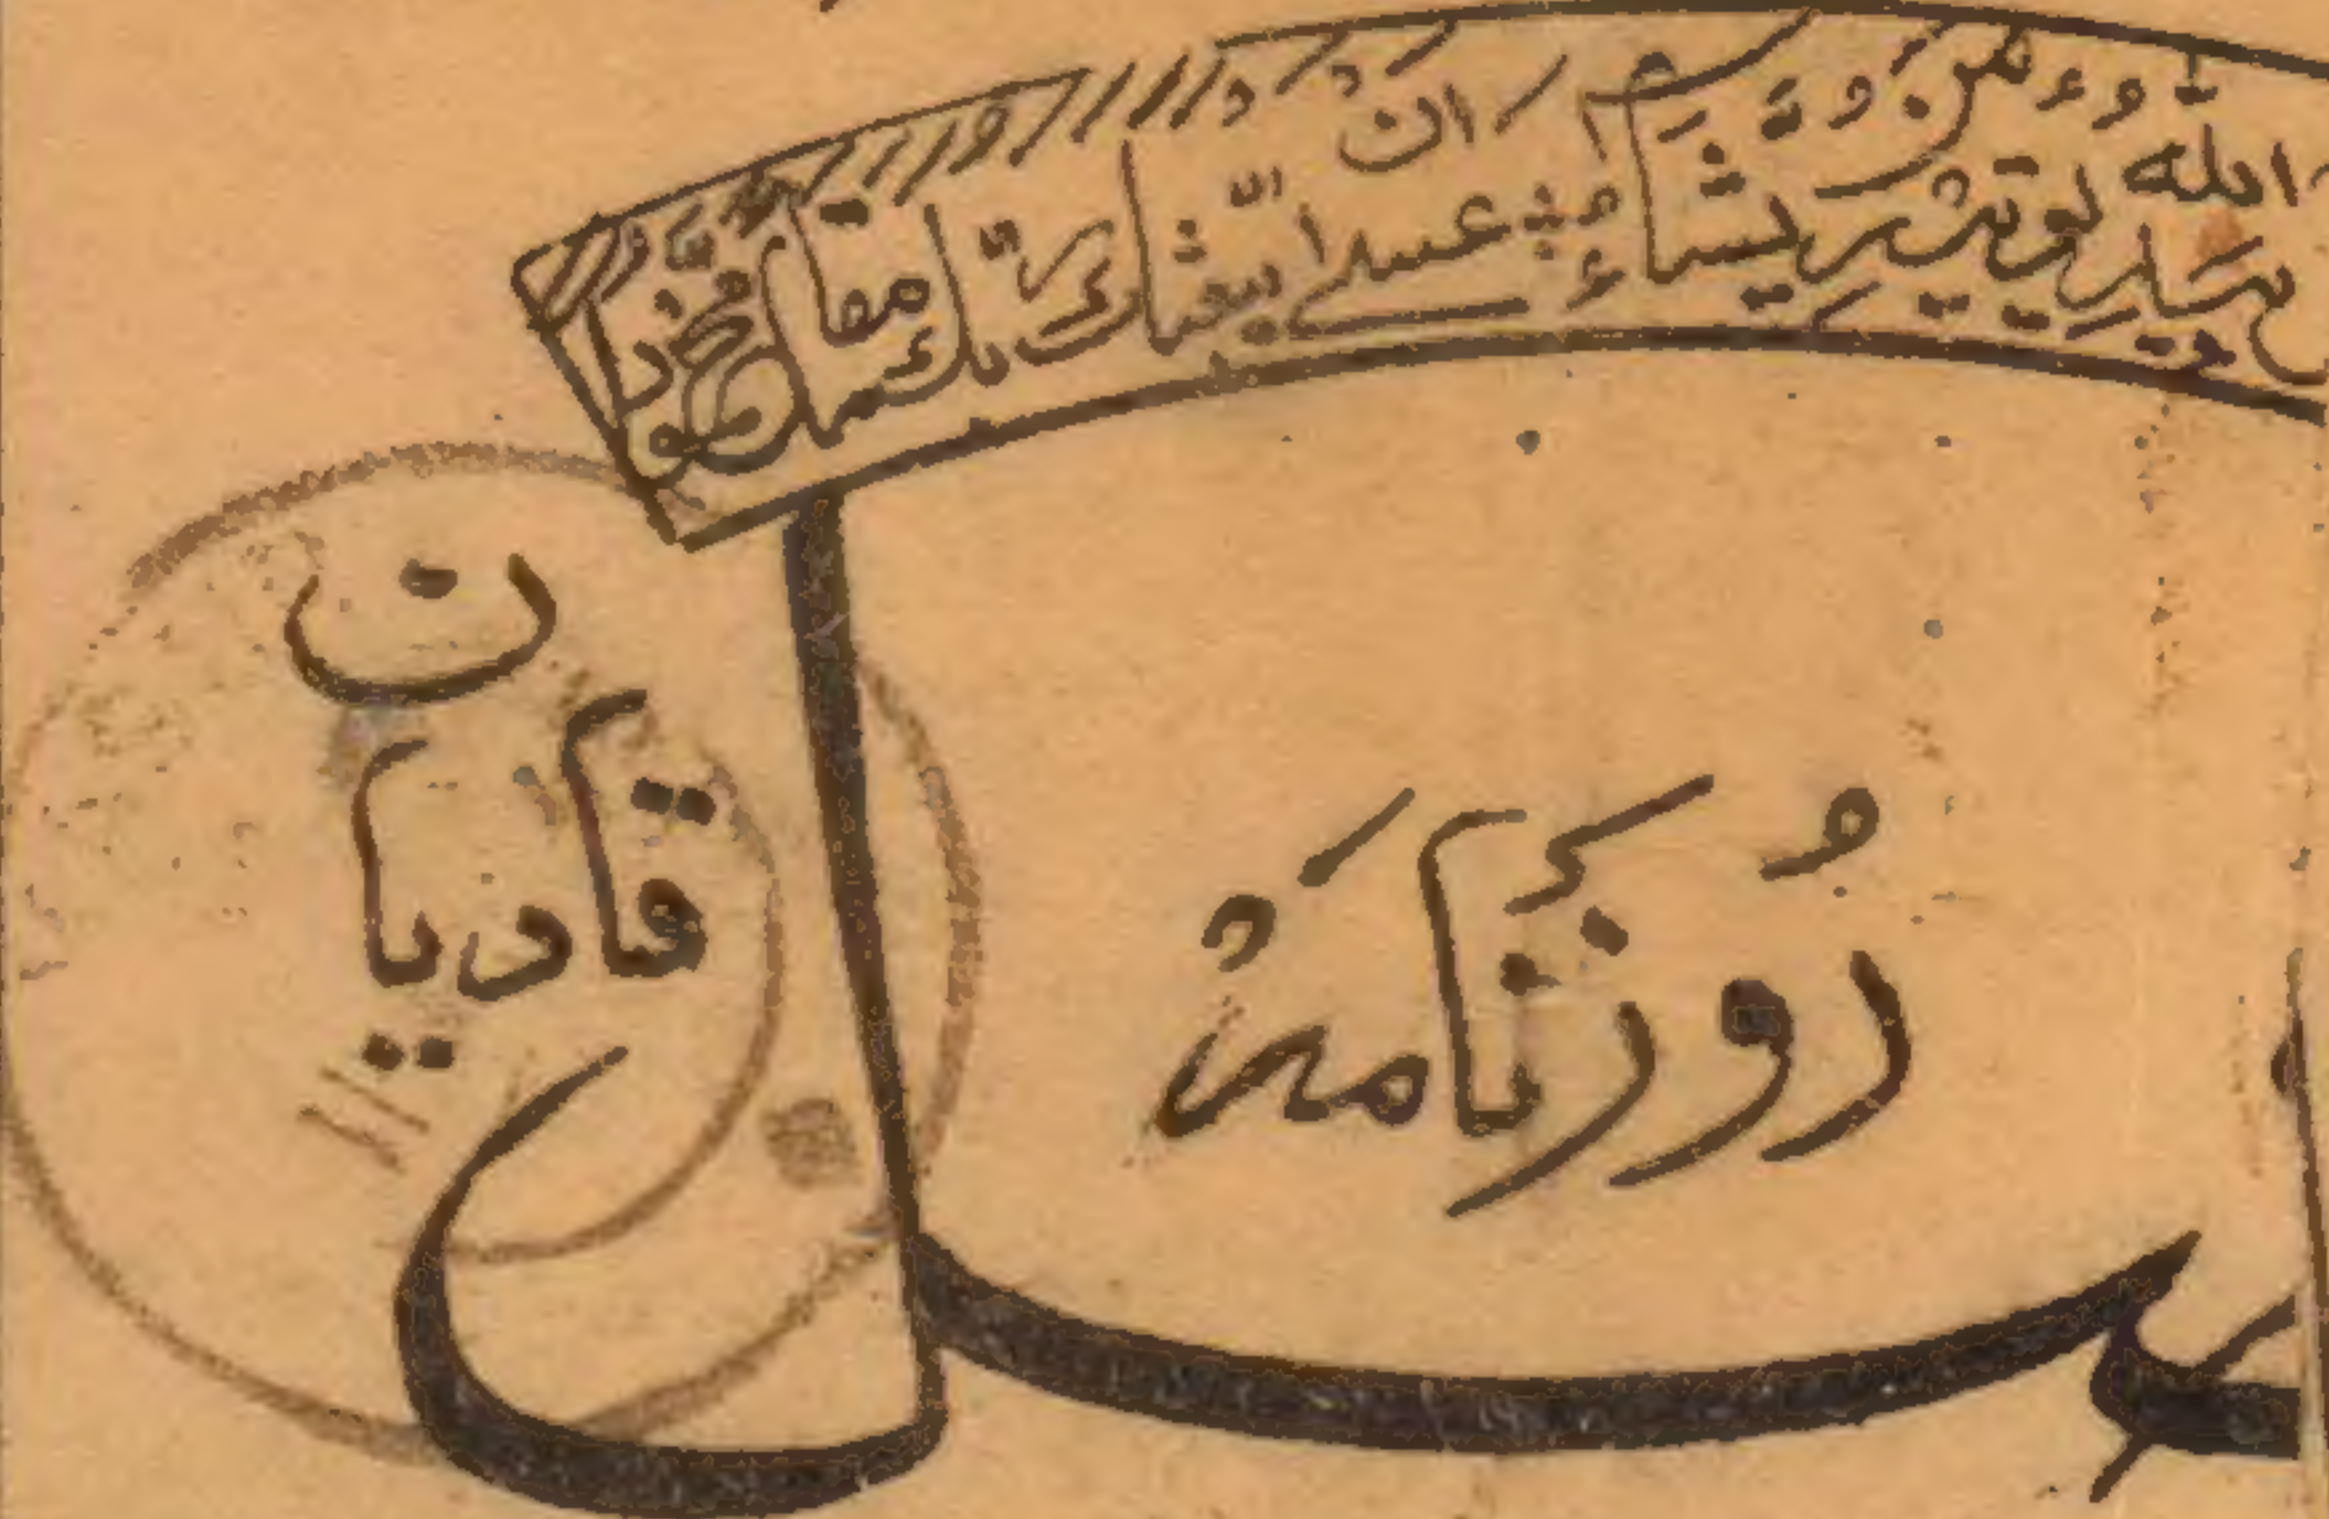 الله يؤتيه من يشاء عسى ان يبعثك ربك مقاما محمودا
روزنامہ
قادیان